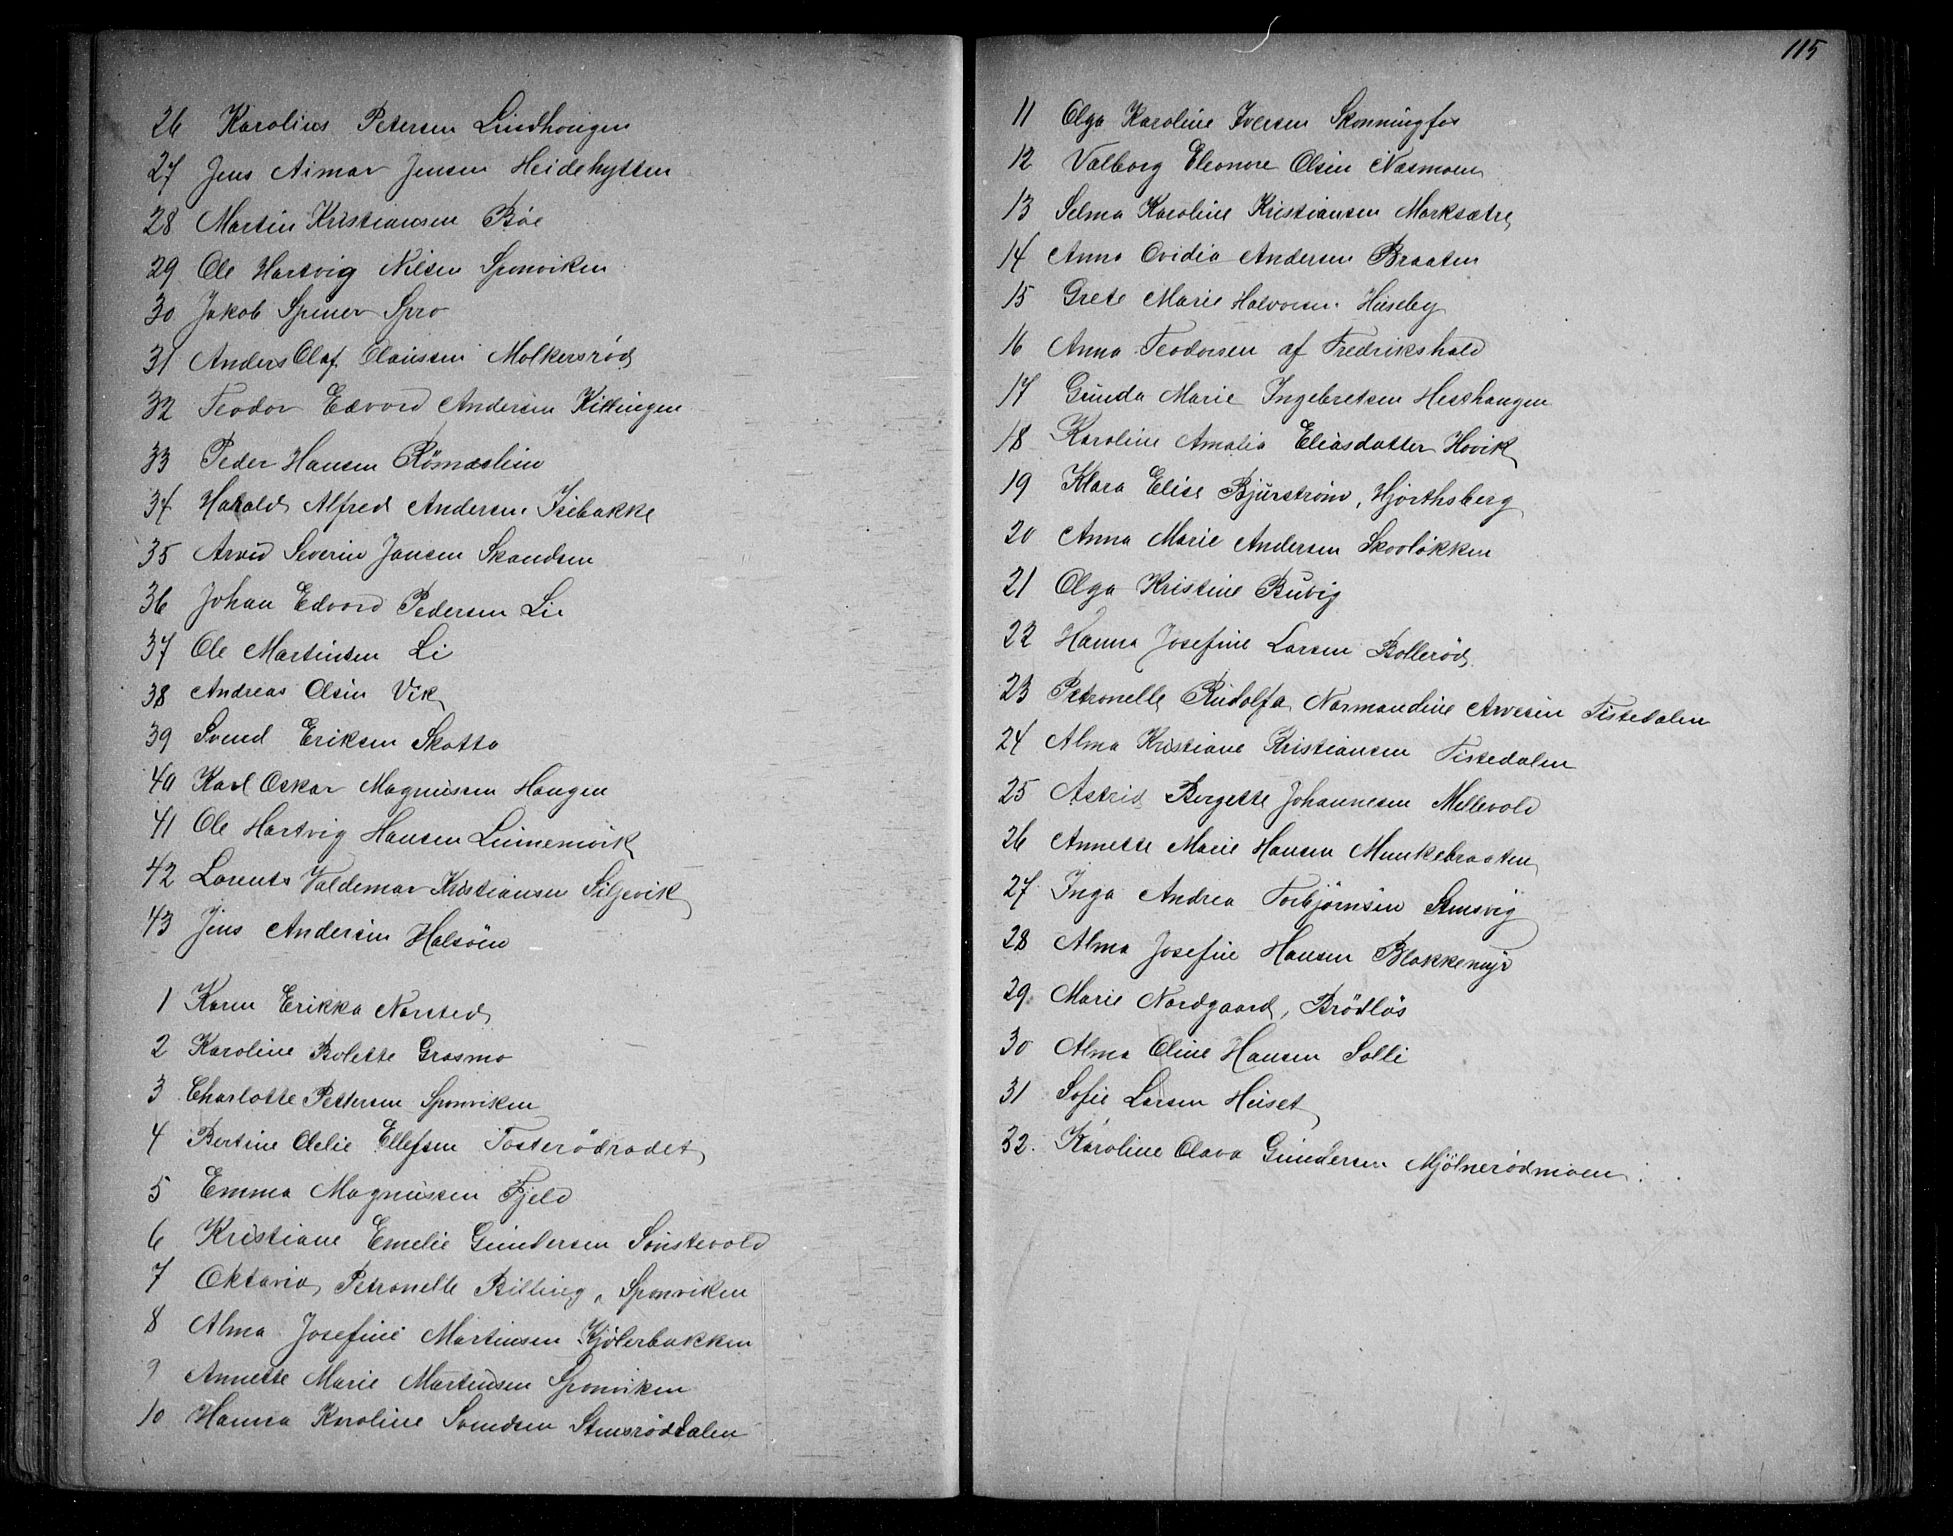 26 Karolius Petersen Lindhougen
27 Jens Aimar Jensen Heidehytten
28 Martin Kristiansen Böe
29 Ole Hartvig Nilsen Sponviken
30 Jakob Spener Spro
31 Anders Olaf Claussen Molkersrød
32 Teodor Edvord Andersen Kittingen
33 Peder Hansen Römæsliin
34 Harald Alfred Andersen Isebakke
35 Arvid Severin Jansen Skandsen
36 Johan Edvord Pedersen Li
37 Ole Martinsen Li
38 Andreas Olsen Vik
39 Svend Eriksen Skotto
40 Karl Oskar Magnussen Hougen
41 Ole Hartvig Hansen Linnemvik
42 Lorents Valdemar Kristiansen Siljevik
43 Jens Andersen Halsöen
1 Karen Erikka Norsted
2 Karoline Bolette Grasmo
3 Charlotte Pettersen Sponviken
4 Bertine Oelie Ellefsen Tosterödrodet
5 Emma Magnussen Fjeld
6 Kristiane Emelie Gundersen Sønstevold
7 Oktavia Petronelle Billing, Sponviken
8 Alma Josefine Martinsen Kjølerbakken
9 Annette Marie Martinsen Sponviken
10 Hanna Karoline Svendsen Stensrøddalen
115
11 Olga Karoline Iversen Skonningfos
12 Valborg Eleonore Olsen Næsmoen
13 Selma Karoline Kristiansen Marksætre
14 Anna Ovidia Andersen Braaten
15 Grete Marie Halvorsen Huseby
16 Anna Teodorsen af Fredrikshald
17 Gunda Marie Ingebretsen Hesthaugen
18 Karoline Amalia Eliasdatter Hovik
19 Klara Elise Bjurstrøm, Hjorthsberg
20 Anna Marie Andersen Skovløkken
21 Olga Kristine Buvig
22 Hanna Josefine Larsen Bollerød
23 Petronelle Rudolfa Normandine Arvesen Tistedalen
24 Alma Kristiane Kristiansen Tistedalen
25 Astrid Bergette Johannesen Mellevold
26 Annette Marie Hansen Munkebraaten
27 Inga Andrea Torbjørnsen Stensvig
28 Alma Josefine Hansen Blakkemyr
29 Marie Nordgaard, Brödlös
30 Alma Oline Hansen Solli
31 Sofie Larsen Huset
32. Karoline Olava Gundersen Mjölnerödmoen